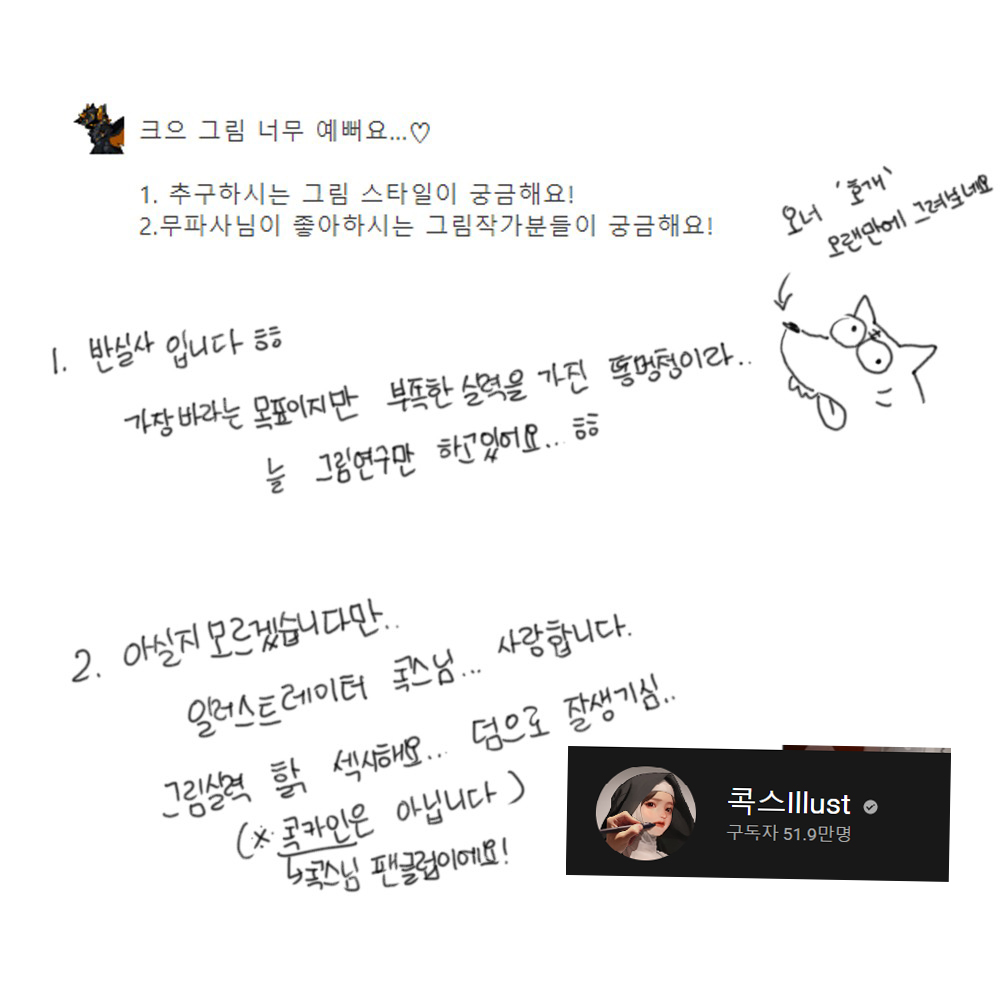 크으 그림 너무 예뻐요...♡
1. 추구하시는 그림 스타일이 궁금해요!
2.무파사님이 좋아하시는 그림작가분들이 궁금해요!
오너 '호개'
오랜만에 그려보네요
1. 반실사 입니다 ㅎㅎ
가장 바라는 목표이지만 부족한 실력을 가진 똥멍청이라..
늘 그림연구만 하고있어요... ㅎㅎ
2. 아실지 모르겠습니다만..
일러스트레이터 콕스님... 사랑합니다.
그림실력 핡 섹시해요... 덤으로 잘생기심..
(※ 콕카인은 아닙니다)
↳콕스님 팬클럽이에요!
콕스Illust
구독자 51.9만명